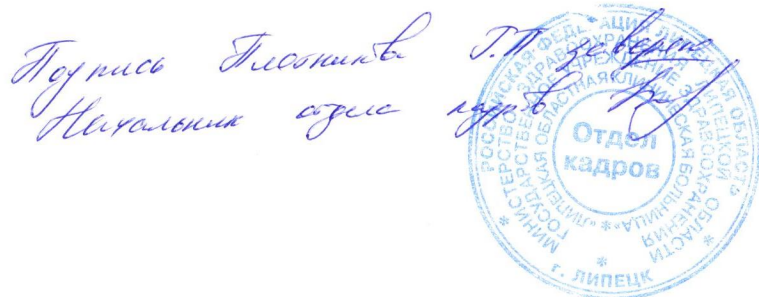 Подпись Плотникова Г.П заверяю
Начальник отдела кадров
РОССИЙСКАЯ ФЕДЕРАЦИЯ ЛИПЕЦКАЯ ОБЛАСТЬ
МИНИСТЕРСТВО ЗДРАВООХРАНЕНИЯ ЛИПЕЦКОЙ ОБЛАСТИ
ГОСУДАРСТВЕННОЕ УЧРЕЖДЕНИЕ ЗДРАВООХРАНЕНИЯ
"ЛИПЕЦКАЯ ОБЛАСТНАЯ КЛИНИЧЕСКАЯ БОЛЬНИЦА"
Отдел
кадров
г. ЛИПЕЦК